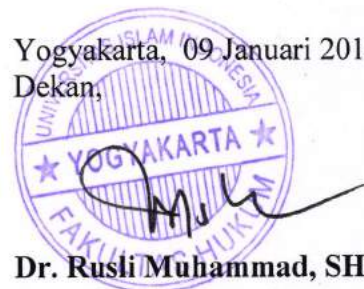 Yogyakarta, 09 Januari 201
Dekan,
UNIVERSITAS ISLAM INDONESIA
YOGYAKARTA
FAKULTAS HUKUM
Dr. Rusli Muhammad, SH